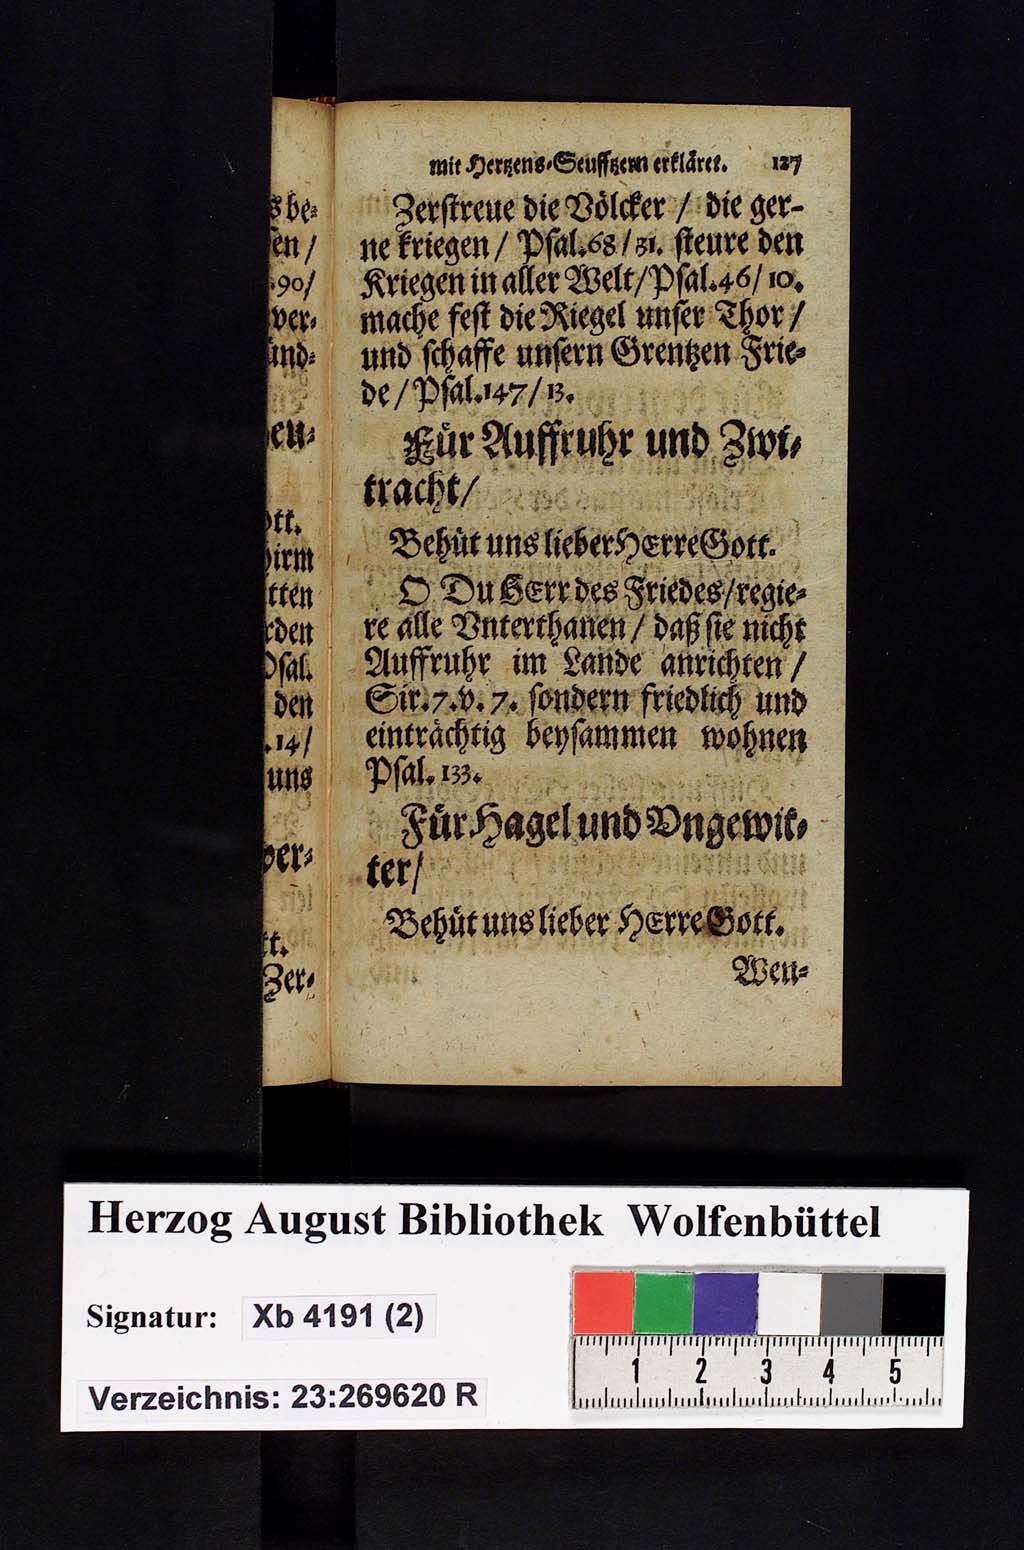 mit Hertzens-Seufftzern erkläret. 127
Zerstreue die Völcker / die ger-
ne kriegen / Psal.68/31. steure den
Kriegen in aller Welt/Psal.46/10.
mache fest die Riegel unser Thor /
und schaffe unsern Grentzen Frie-
de / Psal.147/13.
Für Auffruhr und Zwi-
tracht/
Behüt uns lieber HErre Gott.
O Du HErr des Friedes/regie-
re alle Vnterthanen / daß sie nicht
Auffruhr im Lande anrichten /
Sir.7.v.7. sondern friedlich und
einträchtig beysammen wohnen
Psal. 133.
Für Hagel und Vngewit-
ter/
Behüt uns lieber HErre Gott.
Wen-
be-
/
.90/
ver-
und-
ott.
tten
den
.14/
uns
ver-
Zer-
Herzog August Bibliothek Wolfenbüttel
Signatur: Xb 4191 (2)
Verzeichnis: 23:269620 R
1 2 3 4 5